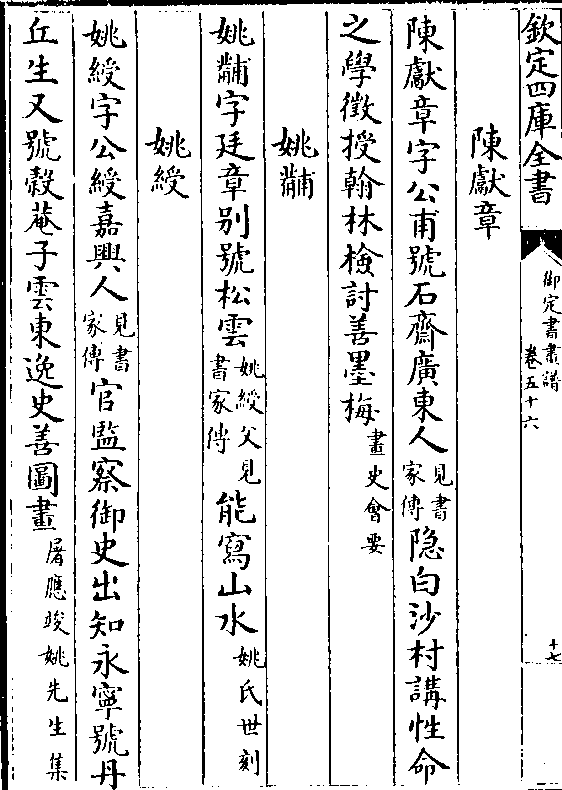 欽定四庫全書
御定書畫譜
卷五十六
十七
陳獻章
陳獻章字公甫號石齋廣東人見書家傳隐白沙村講性命
之學徵授翰林檢討善墨梅畫史會要
姚黼
姚黼字廷章别號松雲姚綬父見書家傳能寫山水姚氏世刻
姚綬
姚綬字公綬嘉興人見書家傳官監察御史出知永寧號丹
丘生又號榖菴子雲東逸史善圖畫屠應埈姚先生集